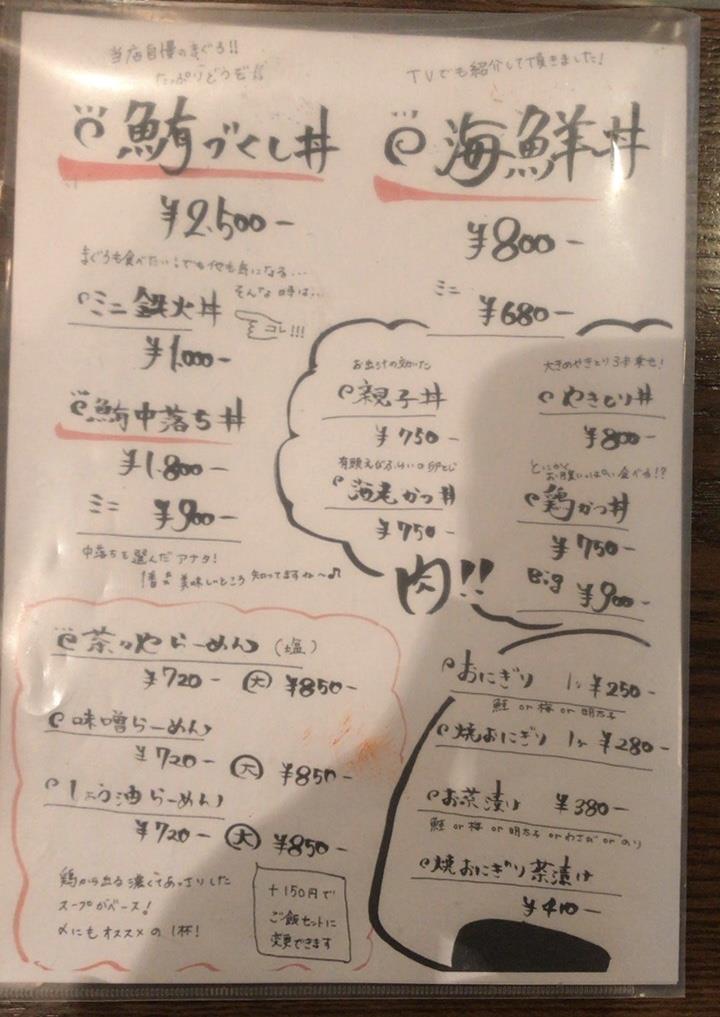 当店自慢のまぐろ!!
たっぷりどうぞ!!
鮪づくし丼
¥2,500-
まぐろも食べたい、でも他も気になる...
そんな時は...
ミニ鉄火丼
コレ!!!
¥1,000-
鮪中落ち丼
¥1,800-
ミニ ¥900-
中落ちを選んだアナタ!
1番美味しいところ知ってますね～♫
TVでも紹介して頂きました!
海鮮丼
¥800-
ミニ ¥680-
お出汁の効いた
親子丼
¥750-
大きめやきとり3本乗せ!
やきとり丼
¥800-
有頭えびふらいの卵とじ
海老かつ丼
¥750-
とにかく
お腹いっぱい食べる!?
鶏かつ丼
¥750-
Big ¥900-
肉!!
茶々やらーめん (塩)
¥720- 大 ¥850-
味噌らーめん
¥720- 大 ¥850-
しょう油らーめん
¥720- 大 ¥850-
鶏から出る濃くてあっさりした
スープがベース!
〆にもオススメの1杯!
+150円で
ご飯セットに
変更できます
おにぎり 1ヶ ¥250-
鮭 or 梅 or 明太子
焼おにぎり 1ヶ ¥280-
お茶漬け ¥380-
鮭 or 梅 or 明太子 or わさび or のり
焼おにぎり茶漬け
¥410-